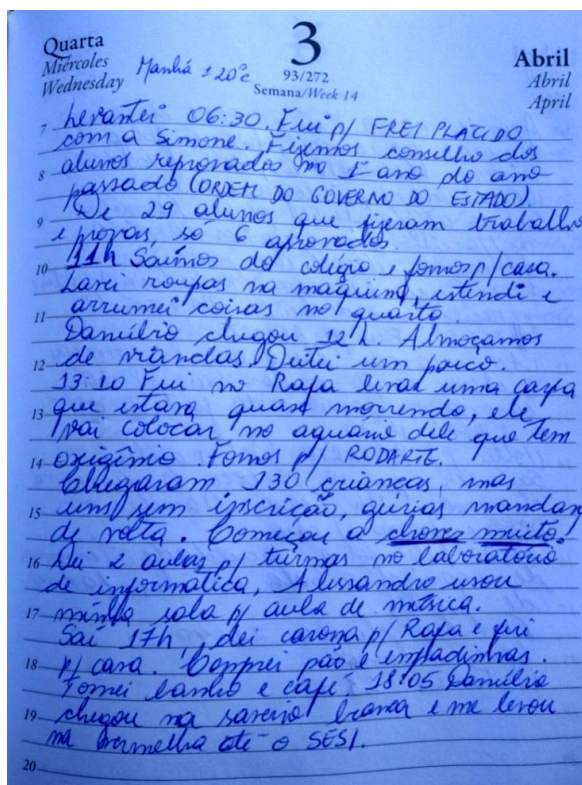 Quarta
Miércoles
Wednesday
Manhã ± 20°c
3
93/272
Semana/Week 14
Abril
Abril
April
7 Levantei 06:30. Fui p/ FREI PLÁCIDO
com a Simone. Fizemos conselho dos
8 alunos reprovados no 1º ano do ano
passado (ORDEM DO GOVERNO DO ESTADO)
9 De 29 alunos que fizeram trabalho
e provas, só 6 aprovados.
10 11h Saímos do colégio e fomos p/ casa.
Lavei roupas na máquina, estendi e
11 arrumei coisas no quarto.
Danúbio chegou 12h. Almoçamos
12 de viandas. Deitei um pouco.
13:10 Fui no Rafa levar uma carpa
13 que estava quase morrendo, ele
vai colocar no aquário dele que tem
14 oxigênio. Fomos p/ RODARTE.
Chegaram 130 crianças, mas
15 uns sem inscrição, gurias mandam
de volta. Começou a chover muito!
16 Dei 2 aulas p/ turmas no laboratório
de informática, Alessandro usou
17 minha sala p/ aula de música.
Saí 17h, dei carona p/ Rafa e fui
18 p/ casa. Comprei pão e empadinhas.
Tomei banho e café. 18:05 Danúbio
19 chegou na saveiro branca e me levou
na vermelha até o SESI.
20